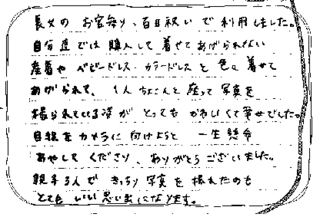 長女の お宮参り、百日祝いで利用しました。
自分達では 購入して 着せてあげられない
産着や ベビードレス、カラードレスと 色々 着せて
あげられて、1人 ちょこんと 座って 写真を
撮られている姿が とっても かわいくて 幸せでした。
目線を カメラに 向けようと 一生懸命
あやして くださり、ありがとう ございました。
親子3人で きっちり 写真を 撮れたのも
とても いい 思い出になります。